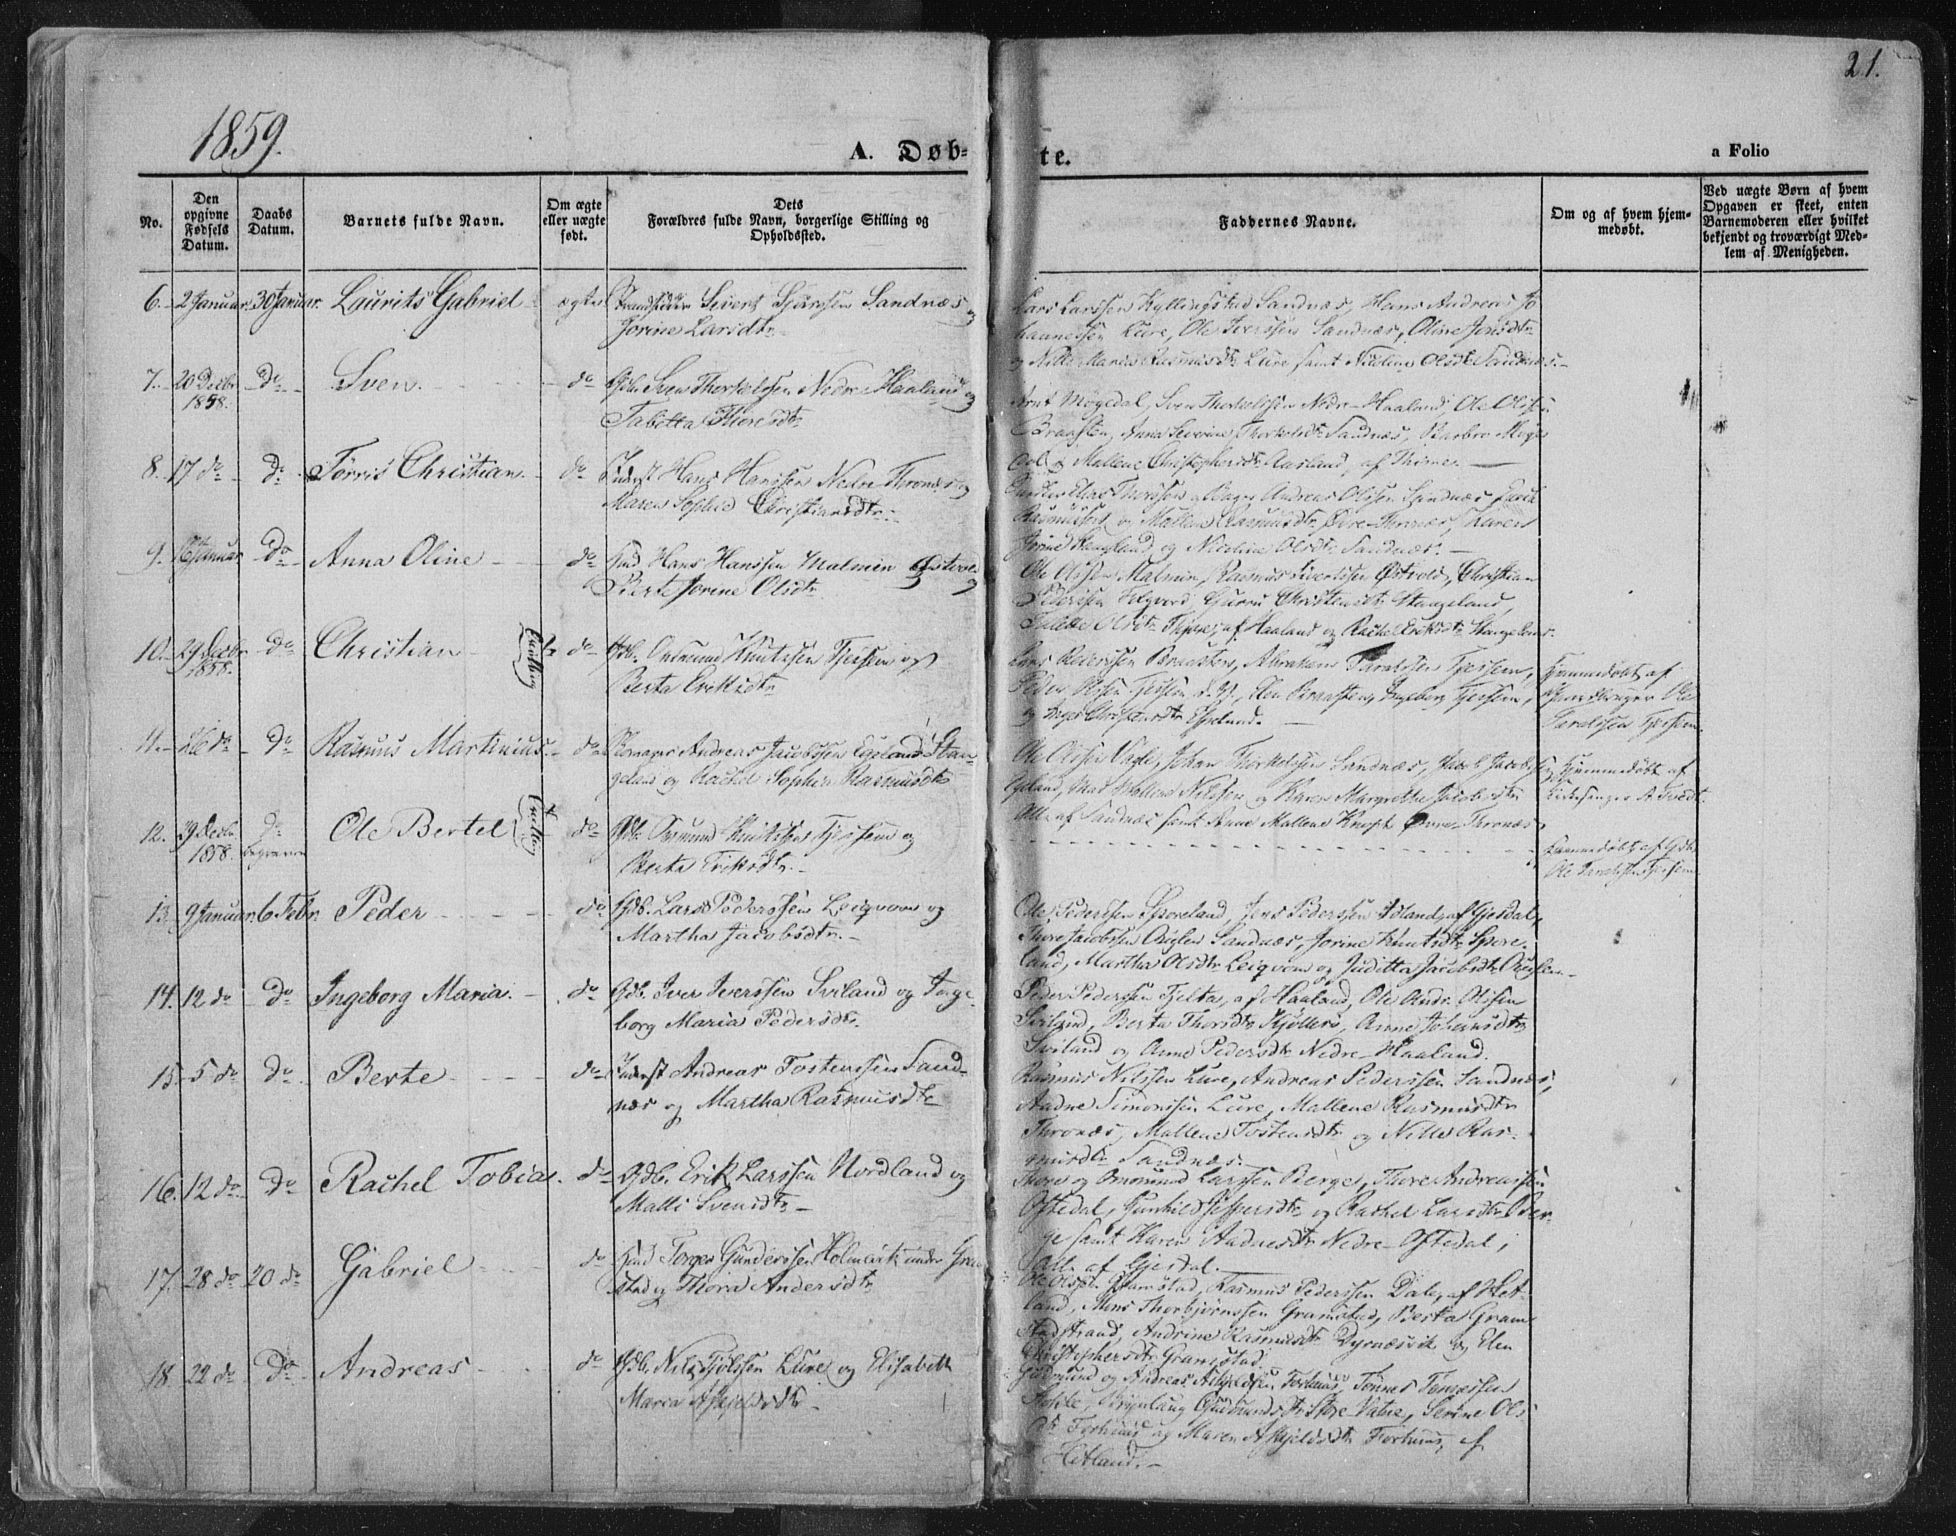 1859.
A. Døb-
te.
a Folio
21.
No.
Den opgivne Fødsels Datum.
Daabs Datum.
Barnets fulde Navn.
Om ægte eller uægte født.
Dets Forældres fulde Navn, borgerlige Stilling og Opholdssted.
Faddernes Navne.
Om og af hvem hjem-
medøbt.
Ved uægte Børn af hvem
Opgaven er skeet, enten
Barnemoderen eller hvilket
bekjendt og troværdigt Med-
lem af Menigheden.
6. 2 Januar. 30 Januar. Laurits Gabriel ægte Strandsidder Sivert Sjursen Sandnæs og
Jorine Larsdtr
Lars Larssen Kyllingstad Sandnæs, Hans Andreas Jo
hannessen Lure, Ole Iverssen Sandnæs, Oline Jonsdtr
og Nille Maria Rasmusdtr Lure samt Nicoline Olsdtr Sandnæs.
7. 20 Decbr 1858. do Sven. do Gdb. Sven Thorkelssen Nedre Haaland og
Tabitta Thoresdtr
Arnt Møgedal, Sven Thorkelssen Nedre-Haaland, Ole Olssen
Braasten, Anna Severine Thorkelsdtr Sandnæs, Barbro Møge
dal og Mallene Christophersdtr Aasland, af Thime.
8. 17 do do Tørris Christian. do Inderst Hans Hanssen Nedre Thronæs og
Maren Sophie Christiansdtr
Elias Thorssen Andreas Olssen Sandnæs,
Rasmussen og Mallene Rasmusdtr Øvre-Thronæs, Karen
Jorine Haugland og Nicoline Olsdtr Sandnæs.
9. 16 Januar do Anna Oline do Hmd Hans Hanssen Malmin Østvold og
Berte Jorine Olsdtr
Ole Olssen Malmin, Rasmus Sivertssen Østvold, Christian
Pederssen Gurri Christensdtr Stangeland,
Olsdtr af Haaland og Rachel Eriksdtr Stangeland.
10. 29 Decbr 1858. do Christian Tvilling do Gdb. Omund Knutssen Tjessem og
Berta Eriksdtr
Lars Pederssen Braasten, Abraham Taralssen Tjessem,
Peder Olssen Tjessem d. y., Elen Braasten, Ingeborg Tjessem,
og Inger Christensdtr Espeland.
Hjemmedøbt af
Gaardbruger Ole
Taralssen Tjessem
11. 26 do do Rasmus Martinius. do Andreas Jacobssen Egeland Stan-
geland og Rachel Sophie Rasmusdtr
Ole Olssen Vagle, Johan Thorkelssen Sandnæs, Jacob Jacobssen
Egeland, Mallene Nilssen og Karen Margrethe Jacobsdtr
Alle af Sandnæs samt Anne Mallene Knight Øvre-Thronæs.
Hjemmedøbt af
Kirkesanger A. Tvedt
12. 29 Decbr 1858. do begraven Ole Bertel Tvilling do Gdb. Omund Knutssen Tjessem og
Berta Eriksdtr
Hjemmedøbt af Gdb.
Ole Taralssen Tjessem
13. 9 Januar. 6 Febr. Peder do Gdb. Lars Pederssen Leiqvam og
Martha Jacobsdtr.
Ole Pederssen Sporeland, Jens Pederssen af Gjesdal,
Thore Jacobssen Sandnæs, Jorine Knutsdtr Spore-
land, Martha Olsdtr Leiqvam og Juditta Jacobsdtr
14. 12 do do Ingeborg Maria. do Gdb. Iver Iverssen Sviland og Inge-
borg Maria Pedersdtr.
Peder Pederssen Tjelta, af Haaland, Ole Andr. Olssen
Sviland, Berta Thorsdtr Kjøllers, Anne Johansdtr
Sviland og Anne Pedersdtr Nedre-Haaland.
15. 5 do do Berte do Inderst Andreas Tostenssen Sand-
næs og Martha Rasmusdtr
Rasmus Nilssen Lure, Andreas Pederssen Sandnæs,
Aadne Simonssen Lure, Mallene Rasmusdtr
Thronæs, Mallene Tostensdtr og Nille Ras-
musdtr Sandnæs.
16. 12 do do Rachel Tobia. do Gdb. Erik Larssen Nordland og
Malli Svensdtr
Thore og Omunnd Larssen Berge, Thore Andreassen
Oftedal, Gunhild Jespersdtr og Rachel Larsdtr Ber-
ge samt Karen Aadnesdtr Nedre-Oftedal,
Alle af Gjesdal.
17. 28 do 20 do Gabriel do Hmd Torger Gunderssen Holmevik under Gram
stad og Thora Andersdtr
Ole Olssen Gramstad, Rasmus Pederssen Dale, af Het-
land, Mons Thorbjørnssen Gramstad, Berta Gram-
stadstrand, Andrine Rasmusdtr Dyrnæsvik og Elen
Christophersdtr Gramstad.
18. 22 do do Andreas do Gdb. Nils Tjølssen Lure og Elisabeth
Maria Askjelsdtr
Gudmund og Andreas Askjelssen Forhuus, Tønnes Tønnessen
Hohle, Brynlaug Gudmundsdtr Store-Vatne, Serine Ols-
dtr Forhuus og Maren Askjelsdtr Forhuus, af
Hetland.